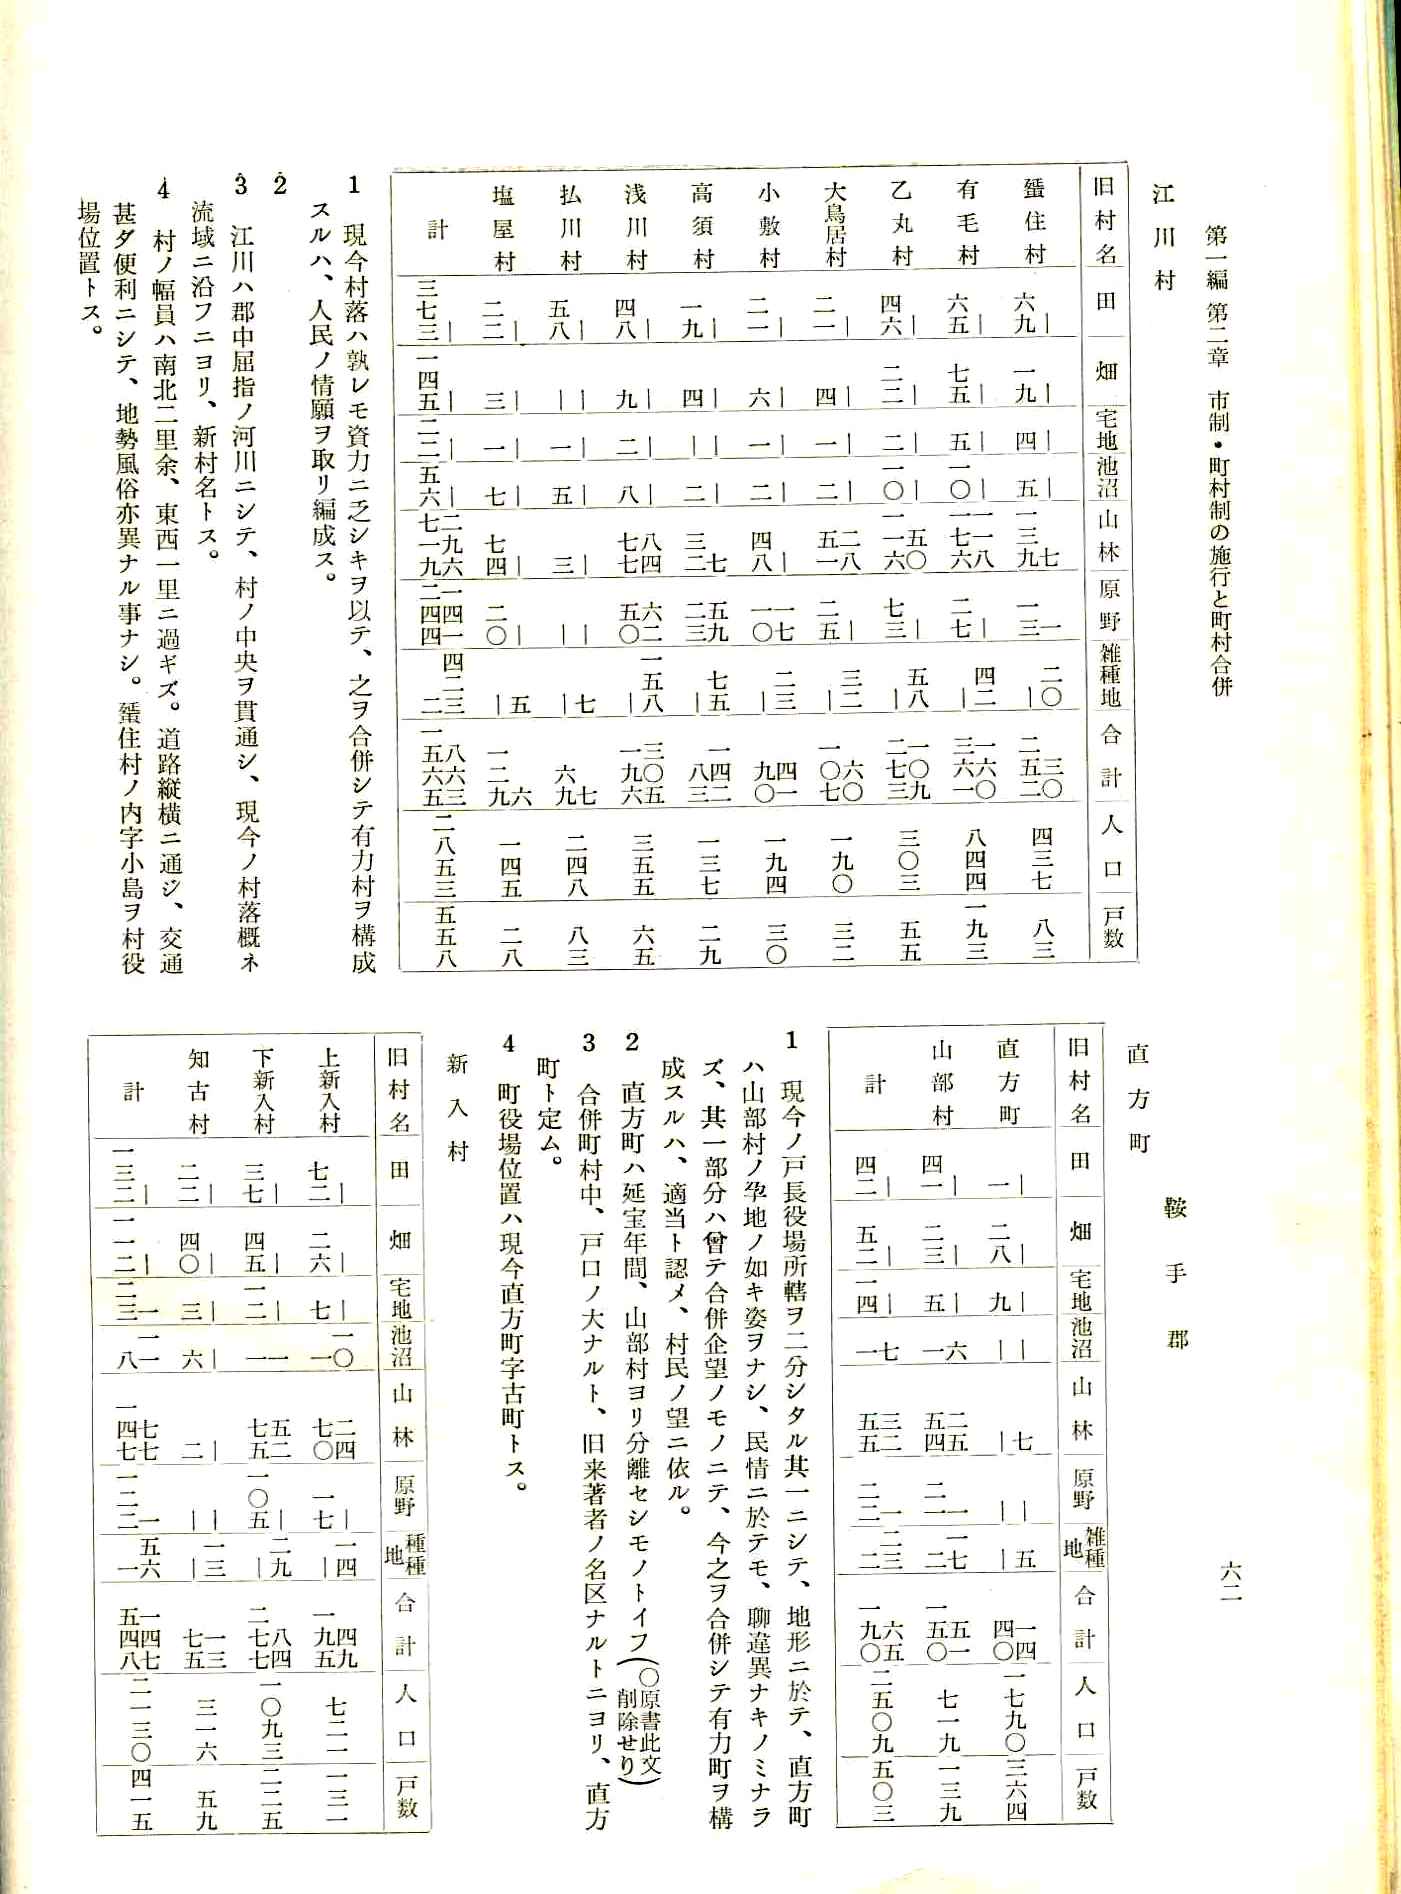 第一編 第二章 市制・町村制の施行と町村合併
六二
江川村
旧村名 田 畑 宅地 池沼 山林 原野 雑種地 合計 人口 戸数
蜑住村 ｜ 六九 ｜ 一九 ｜ 四 ｜ 五 七 一三九 一 一三 二〇 ｜ 三〇 二五二 四三七 八三
有毛村 ｜ 六五 ｜ 七五 ｜ 五 ｜ 一〇 一一八 一七六 ｜ 二七 四二 ｜ 一六〇 三六一 八四四 一九三
乙丸村 ｜ 四六 ｜ 二二 ｜ 二 ｜ 一〇 五〇 一一六 ｜ 七三 五八 ｜ 一〇九 二七三 三〇三 五五
大鳥居村 ｜ 二一 ｜ 四 ｜ 一 ｜ 二 二八 五一 ｜ 二五 三二 ｜ 六〇 一〇七 一九〇 三二
小敷村 ｜ 二一 ｜ 六 ｜ 一 ｜ 二 ｜ 四八 一七 一〇 二三 ｜ 四一 九〇 一九四 三〇
高須村 ｜ 一九 ｜ 四 ｜ ｜ ｜ 二 七 三二 五九 二三 七五 ｜ 一四二 八三 一三七 二九
浅川村 ｜ 四八 ｜ 九 ｜ 二 ｜ 八 八四 七七 六二 五〇 一五八 ｜ 三〇五 一九六 三五五 六五
払川村 ｜ 五八 ｜ ｜ ｜ 一 ｜ 五 ｜ 三 ｜ ｜ 七 ｜ 七 六九 二四八 八三
塩屋村 ｜ 二二 ｜ 三 ｜ 一 ｜ 七 ｜ 七四 ｜ 二〇 五 ｜ 六 一二九 一四五 二八
計 ｜ 三七三 ｜ 一四五 ｜ 二二 ｜ 五六 二九六 七一九 一四一 二四四 四二三 二 八六三 一五六五 二八五三 五五八
1 現今村落ハ孰レモ資力ニ乏シキヲ以テ、之ヲ合併シテ有力村ヲ構成
スルハ、人民ノ情願ヲ取リ編成ス。
2
3 江川ハ郡中屈指ノ河川ニシテ、村ノ中央ヲ貫通シ、現今ノ村落概ネ
流域ニ沿フニヨリ、新村名トス。
4 村ノ幅員ハ南北二里余、東西一里ニ過ギズ。道路縦横ニ通ジ、交通
甚ダ便利ニシテ、地勢風俗亦異ナル事ナシ。蜑住村ノ内字小島ヲ村役
場位置トス。
鞍手郡
直方町
旧村名 田 畑 宅地 池沼 山林 原野 雑種地 合計 人口 戸数
直方町 ｜ 一 ｜ 二八 ｜ 九 ｜ ｜ 七 ｜ ｜ ｜ 五 ｜ 一四 四〇 一七九〇 三六四
山部村 ｜ 四一 ｜ 二三 ｜ 五 六 一 二五 五四 一 二一 一七 二 五一 一五〇 七一九 一三九
計 ｜ 四二 ｜ 五二 ｜ 一四 七 一 三二 五五 一 二二 二三 二 六五 一九〇 二五〇九 五〇三
1 現今ノ戸長役場所轄ヲ二分シタル其一ニシテ、地形ニ於テ、直方町
ハ山部村ノ孕地ノ如キ姿ヲナシ、民情ニ於テモ、聊違異ナキノミナラ
ズ、其一部分ハ曾テ合併企望ノモノニテ、今之ヲ合併シテ有力町ヲ構
成スルハ、適当ト認メ、村民ノ望ニ依ル。
2 直方町ハ延宝年間、山部村ヨリ分離セシモノトイフ(〇原書此文削除せり)
3 合併町村中、戸口ノ大ナルト、旧来著者ノ名区ナルトニヨリ、直方
町ト定ム。
4 町役場位置ハ現今直方町字古町トス。
新入村
旧村名 田 畑 宅地 池沼 山林 原野 種種地 合計 人口 戸数
上新入村 ｜ 七二 ｜ 二六 ｜ 七 一〇 一 二四 七〇 ｜ 一七 一四 ｜ 四九 一九五 七二一 一三一
下新入村 ｜ 三七 ｜ 四五 ｜ 一二 一 一 五二 七五 ｜ 一〇五 二九 ｜ 八四 二七七 一〇九三 二二五
知古村 ｜ 二二 ｜ 四〇 ｜ 三 ｜ 六 ｜ 二 ｜ ｜ 一三 ｜ 一三 七五 三一六 五九
計 ｜ 一三二 ｜ 一一二 一 二三 一一 八 七七 一四七 一 一二二 五六 一 一四七 五四八 二一三〇 四一五